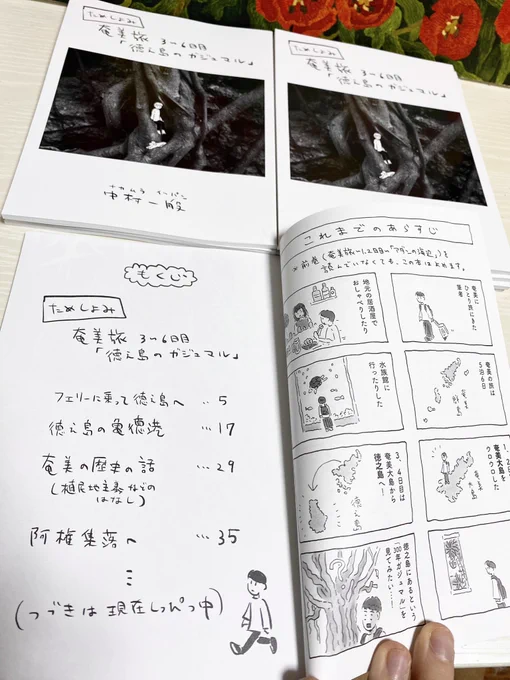 ためしよみ
奄美旅 3〜6日目
「徳之島のガジュマル」
ナカムラ イーパン
中村一般
ためしよみ
奄美旅 3〜6日目
「徳之島のガジュマル」
もくじ
ためしよみ
奄美旅 3〜6日目
「徳之島のガジュマル」
フェリーに乗って徳之島へ ‥5
徳之島の亀徳港 …17
奄美の歴史の話 …29
(植民地主義などのはなし)
阿権集落へ …35
(つづきは現在しっぴつ中)
これまでのあらすじ
※前巻(奄美旅1,2日目の「アダンの海辺」)を
読んでいなくても、この本はよめます。
奄美に
ひとり旅にきた
筆者
奄美の旅は
5泊6日
1、2日
奄美大島を
ウロウロした
地元の居酒屋で
おしゃべりしたり
水族館に
行ったりした
3、4日目は
奄美大島から
徳之島へ!
徳之島にあるという
「300年ガジュマル」を
見てみたい…!
奄美
群島
奄美
大島
徳之島